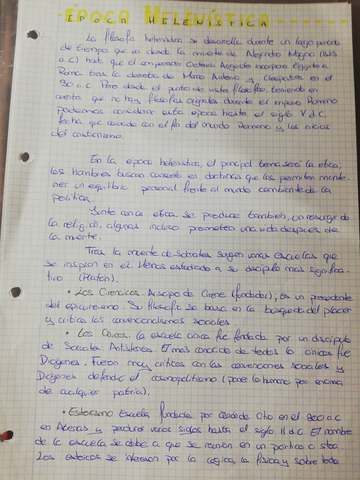 ÉPOCA HELENÍSTICA
La filosofía helenística se desarrolla durante un largo periodo
de tiempo que va desde la muerte de Alejandro Magno (
a.C) hasta que el emperador Octavio Augusto incorpora Egipto a
Roma tras la derrota de Marco Antonio y Cleopatra en el
30 a.C. Pero desde el punto de vista filosófico, teniendo en
cuenta que no hay filosofías originales durante el imperio Romano
podríamos considerar esta época hasta el siglo V d.C.
fecha que coincide con el fin del mundo Romano y los inicios
del cristianismo.
En la época helenística, el principal tema será la ética,
los hombres buscan consuelo en doctrinas que les permitan mante-
ner un equilibrio personal frente al mundo cambiante de la
política.
Junto con la ética, se produce también, un resurgir de
la religión, algunas incluso prometen una vida después de
la muerte.
Tras la muerte de Sócrates surgen varias escuelas que
se inspiran en él. Hemos estudiado a su discípulo más significa-
tivo (Platón).
• Los Cirenaicos. Arísipo de Cirene (fundador), es un precedente
del epicureismo. Su filosofía se basa en la búsqueda del placer
y critica los convencionalismos sociales
• Los Cínicos. La escuela cínica fue fundada por un discípulo
de Sócrates. Antístenes. El más conocido de todos los cínicos fue
Diógenes. Fueron muy críticos con las convenciones sociales y
Diógenes defendió el cosmopolitismo (pone lo humano por encima
de cualquier patria).
• Estoicismo Escuela fundada por Citio en el 300 a.C
en Atenas y perduró varios siglos hasta el siglo II d.C. El nombre
de la escuela se debe a que se reunían en un pórtico o stoa.
Los estoicos se interesan por la lógica, la física y sobre todo